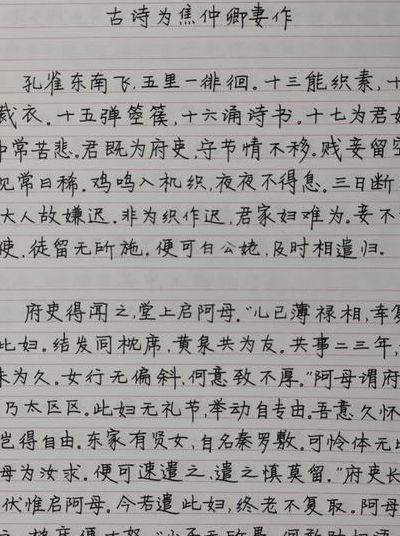 古诗为焦仲卿妻作
孔雀东南飞,五里一徘徊。十三能织素,十
裁衣。十五弹箜篌,十六诵诗书。十七为君妇
中常苦悲。君既为府吏,守节情不移。贱妾留空
见常日稀。鸡鸣入机织,夜夜不得息。三日断
大人故嫌迟。非为织作迟,君家妇难为。妾不
使,徒留无所施。便可白公姥,及时相遣归。
府吏得闻之,堂上启阿母。"儿已薄禄相,幸复
此妇。结发同枕席,黄泉共为友。共事二三年,
未为久。女行无偏斜,何意致不厚。"阿母谓府
乃太区区。此妇无礼节,举动自专由。吾意久怀
岂得自由。东家有贤女,自名秦罗敷。可怜体无比
母为汝求。便可速遣之,遣之慎莫留。"府吏长
伏惟启阿母。今若遣此妇,终老不复取。阿母